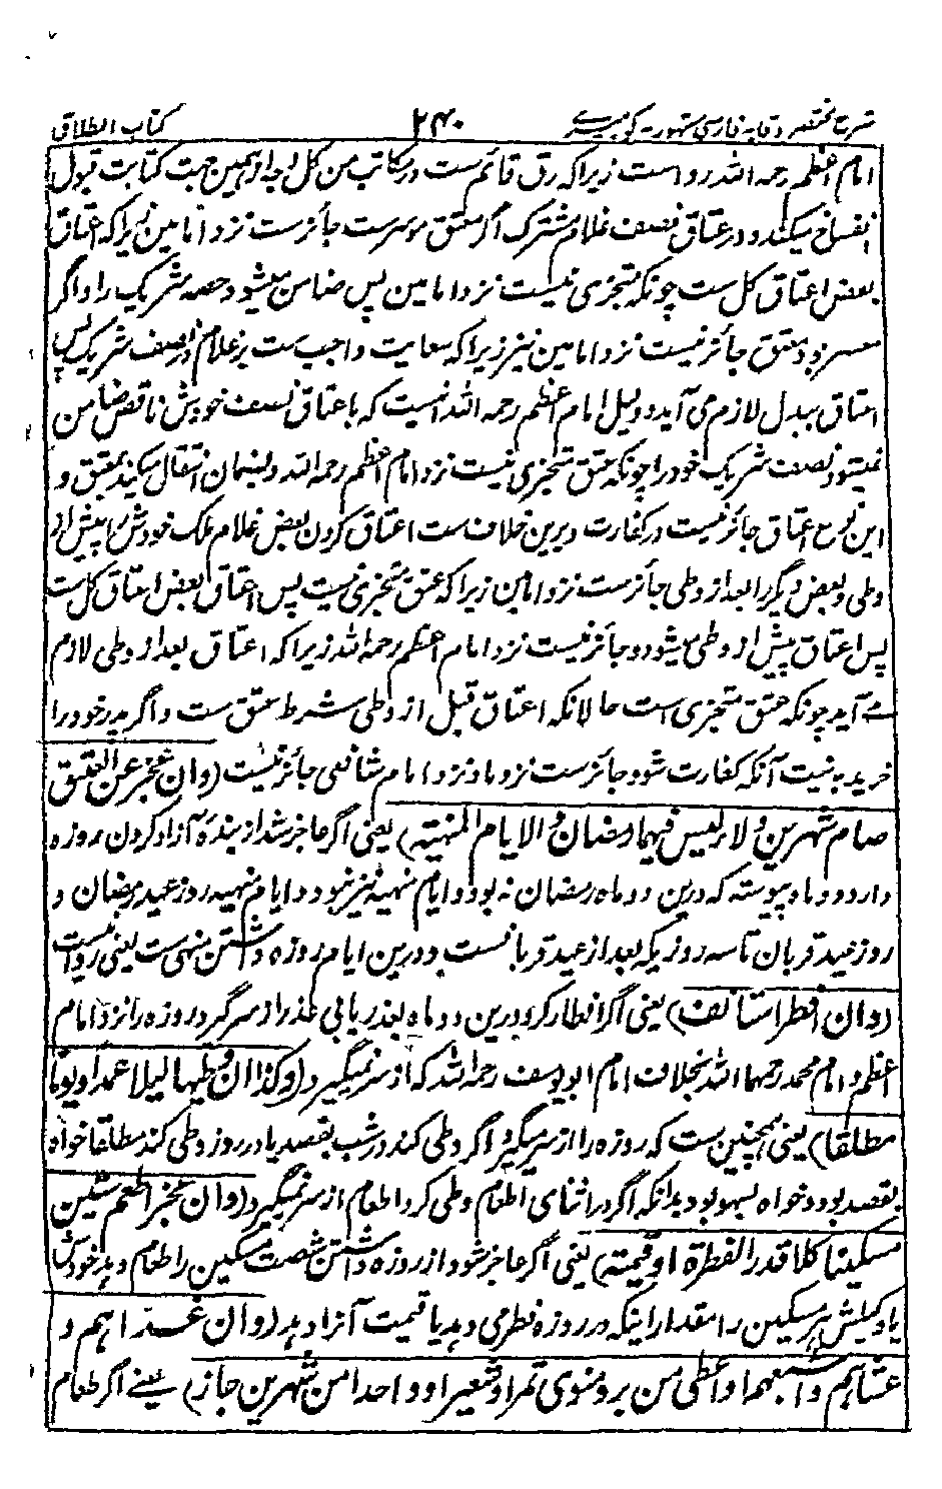 شرح مختصر وقایه فارسی مشهور به کور میری ۲۴۰ کتاب الطلاق
امام اعظم رحمه الله رواست زیراکه رق قائم ست در مکاتب من کل وجه ازهمین جهت کتابت قبول
انفساخ میکند و در عتاق نصف غلام مشترک اگر معتق موسرست جائزست نزد امامین زیراکه اعتاق
بعض اعتاق کل ست چونکه متجزی نیست نزد امامین پس ضامن میشود حصه شریک را و اگر
معسر بود معتق جائز نیست نزد امامین نیز زیراکه سعایت واجب ست بر غلام در نصف شریک پس
اعتاق ببدل لازم می آید و دلیل امام اعظم رحمه الله انیست که باعتاق نصف خودش ناقص ضامن
نمیشود نصف شریک خود را چونکه عتق متجزی نیست نزد امام اعظم رحمه الله و بضمان انتقال میکند بمعتق و
این نوع اعتاق جائز نیست در کفارت و برین خلاف ست اعتاق کردن بعض غلام ملک خودش را پیش از
وطی و بعض دیگر را بعد از وطی جائز ست نزد امامین زیراکه عتق متجزی نیست پس اعتاق بعض اعتاق کل ست
پس اعتاق پیش از وطی میشود و جائز نیست نزد امام اعظم رحمه الله زیراکه اعتاق بعد از وطی لازم
مے آید چونکه عتق متجزی است حالانکه اعتاق قبل از وطی شرط عتق ست و اگر پدر خود را
خرید به نیت آنکه کفارت شود جائزست نزد ما و نزد امام شافعی جائز نیست (وان عجز عن العتیق
صام شهرین ولا ر لیس فیهما رمضان والا یام المنهیة) یعنی اگر عاجز شد از بنده آزاد کردن روزه
دارد دو ماه پیوسته که درین دو ماه رمضان نه بود و ایام منهیه نیز نبود و ایام منهیه روز عید رمضان و
روز عید قربان تا سه روز یکه بعد از عید قربانست و درین ایام روزه داشتن منهی ست یعنی روانیست
(وان افطر استانف) یعنی اگر افطار کرد درین دو ماه بعذر یا بی عذر از سر گیرد روزه را نزد امام
اعظم و امام محمد رحمهما الله بخلاف امام ابو یوسف رحمه الله که از سر نمیگیرد (وکذا ان وطیها لیلا عمدا و یوما
مطلقا) یعنی همچنین ست که روزه را از سر میگیرد اگر وطی کند در شب بقصد یا در روز وطی کند مطلقا خواه
بقصد بود و خواه بسهو بود بدانکه اگر در اثنای اطعام وطی کرد اطعام از سر نمیگیرد (وان عجز اطعم ستین
مسکینا کلا قدر الفطرة او قیمته) یعنی اگر عاجز شود از روزه داشتن شصت مسکین را طعام دهد خودش
یا وکیلش هر مسکین را مقدار اینکه در روزه فطر می دهد یا قیمت آنرا دهد (وان غداهم و
عشاهم واشبعهما واعطی من بر و منوی تمرا و شعیرا و واحدا من شهرین جاز) یعنے اگر طعام